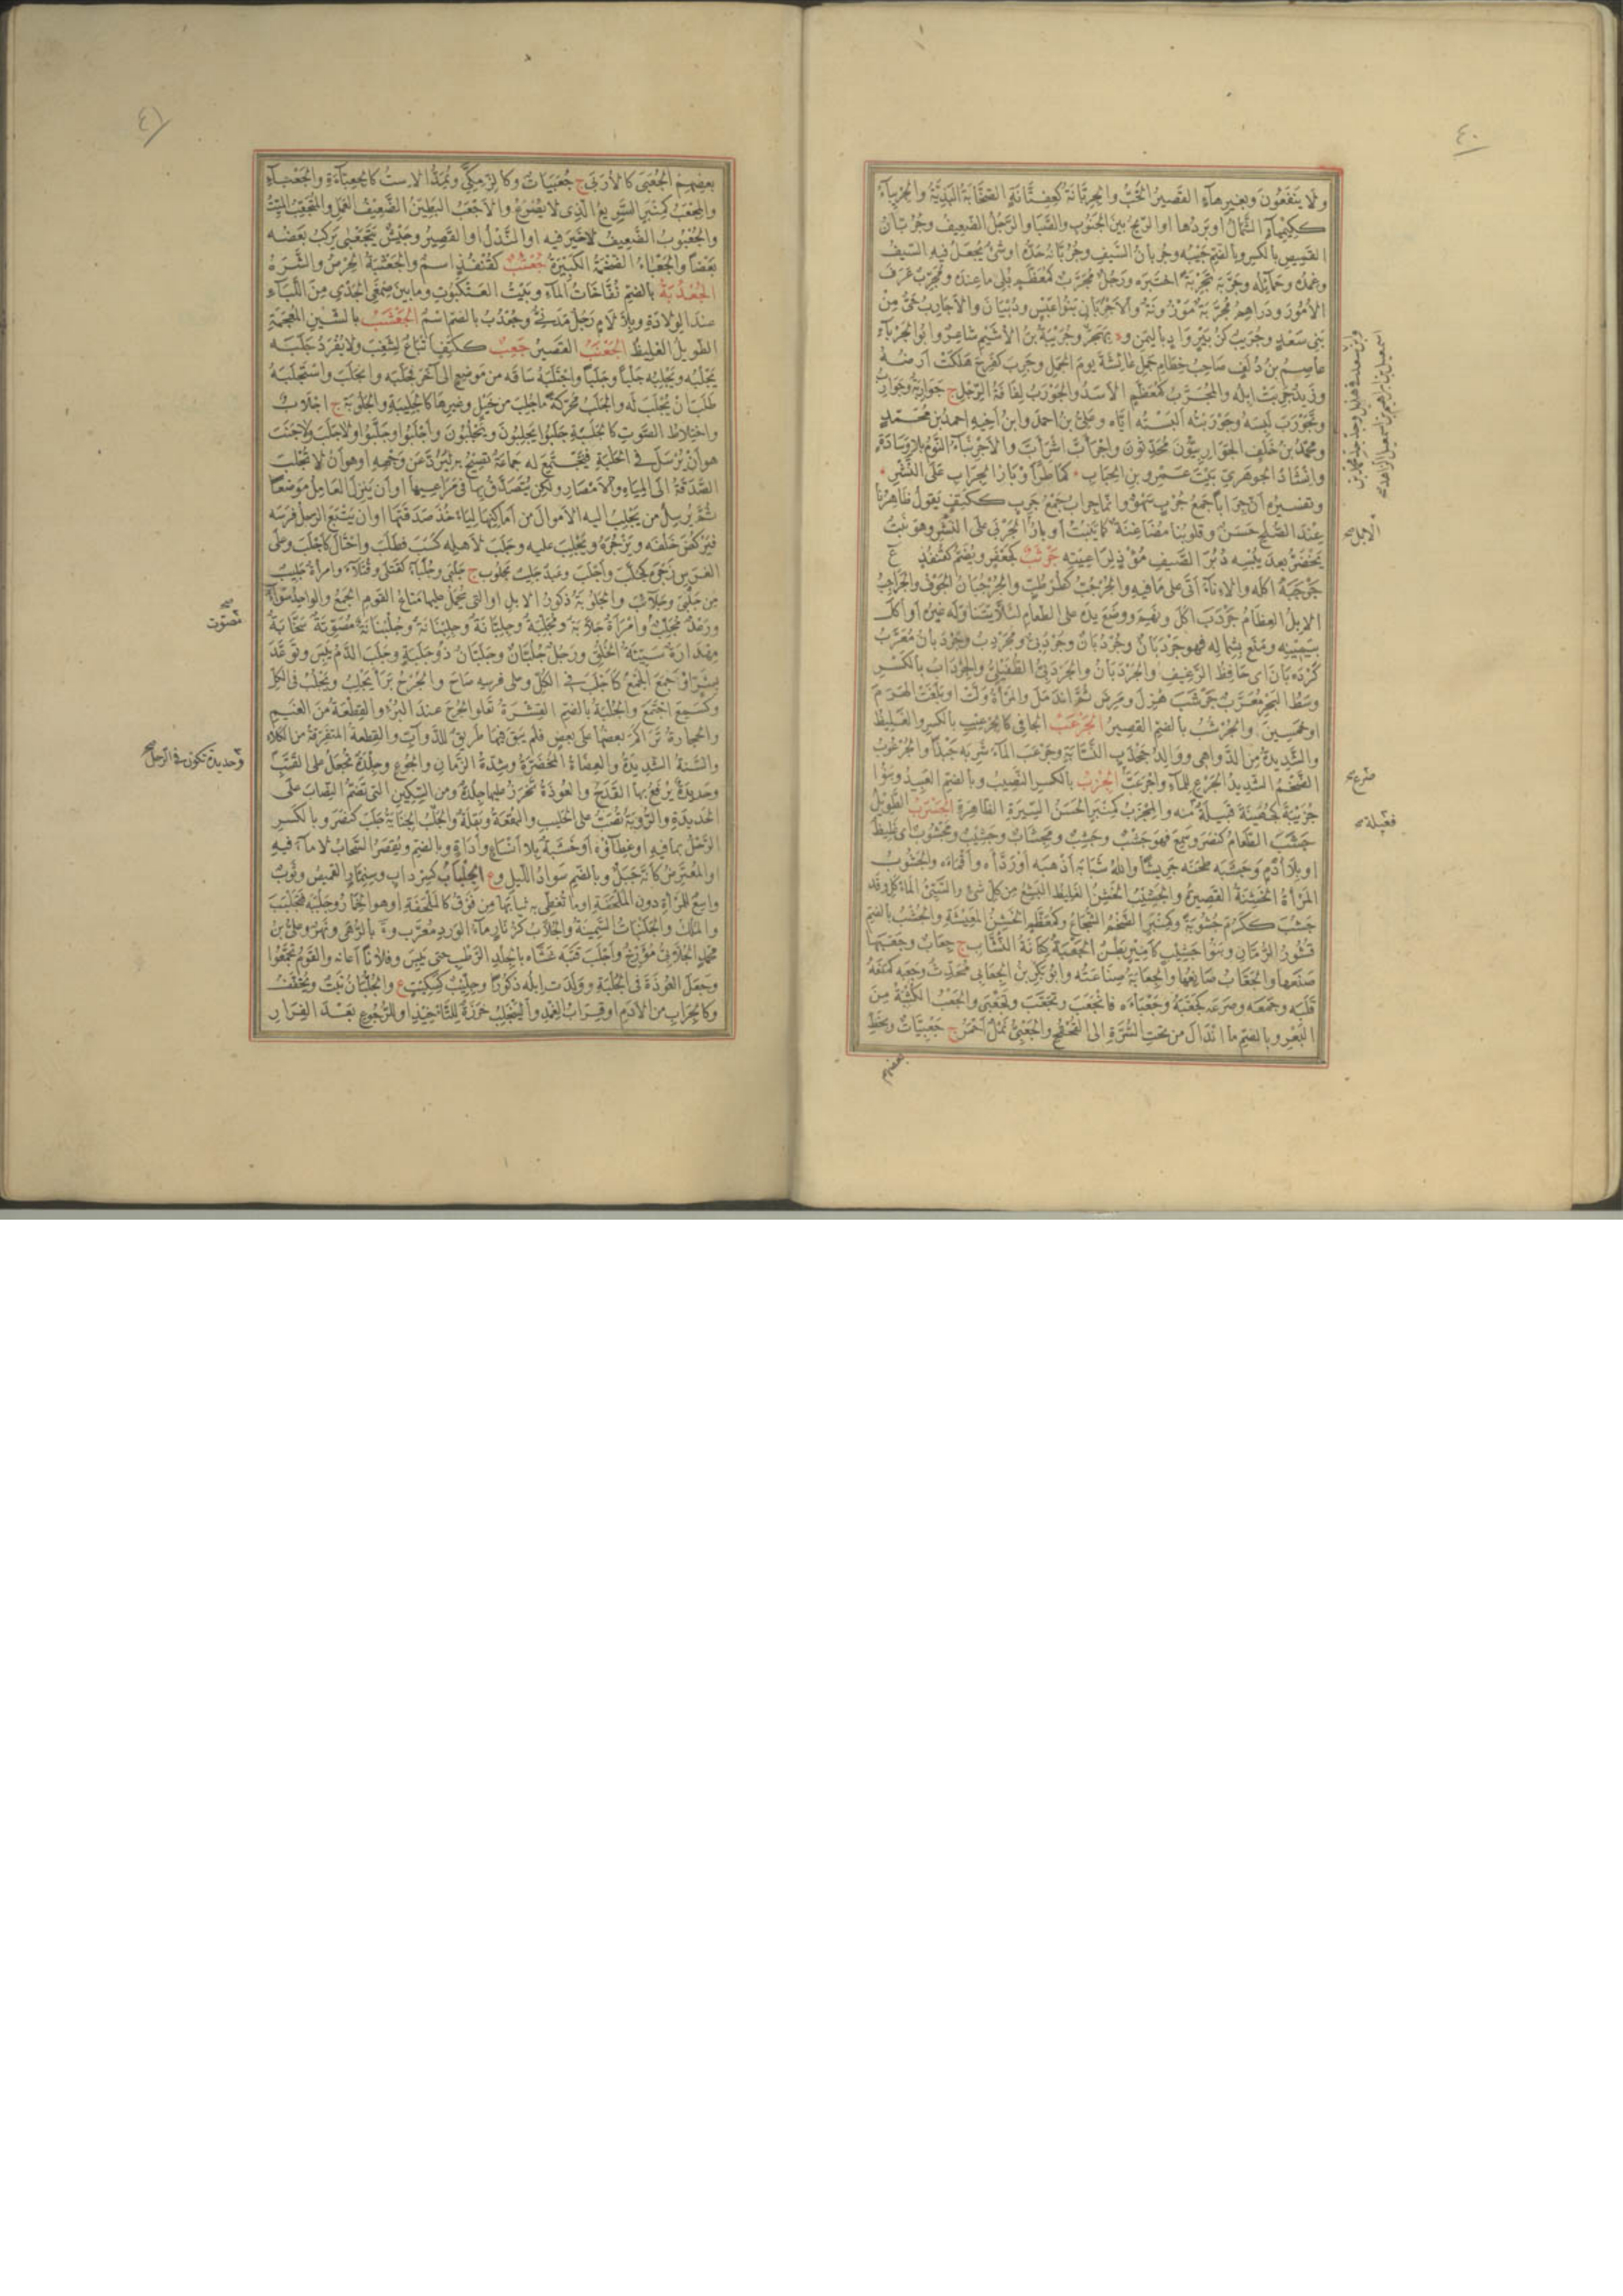 ٤٠
ولا ينفعون وبغير هاء القصير الخب والجربانة كعفتانة الصخابة البذية والجربياء
ككيمياء الشمال او بردها او الريح بين الجنوب والصبا والرجل الضعيف وجربان
القميص بالكسر وبالضم جيبه وجربان السيف وجربانه حده او شئ يجعل فيه السيف
وغمده وحمائله وجربه تجربة اختبره ورجل مجرب كمعظم بلى ما عنده ومجرب عرف
الامور ودراهم مجربة موزونة والاجربان بنو عبس وذبيان والاجارب حى من
بنى سعد وجريب كزبير واد باليمن وة بهجر وجريبة بن الاشيم شاعر وابو الجرباء
عاصم بن دلف صاحب خطام جمل عائشة يوم الجمل وجرب كفرح هلكت ارضه
وزيد جربت ابله والمجرب كمعظم الاسد والجورب لفافة الرجل ج جواربة وجوارب
وتجورب لبسه وجوربته البسته اياه وعلى بن احمد وابن اخيه احمد بن محمد
ومحمد بن خلف الجواربيون محدثون واجرأب اشرأب والاجرنباء النوم بلا وسادة
وانشاد الجوهرى بيت عمرو بن الحباب كما طر اوبار الجراب على النشر
وتفسيره ان جرابا جمع جرب سهو وانما جراب جمع جرب ككتف يقول ظاهرنا
عند الصلح حسن وقلوبنا متضاغنة كما تنبت اوبار الجربى على النشر وهو نبت
يخضر بعد يبسه دبر الصيف مؤذ لراعيته جرثب كجعفر ويضم كقنفذ ع
جرجبه اكله والاناء اتى على ما فيه والجرجب كطرطب والجرجبان الجوف والجراجب
الابل العظام جردب اكل ونهم ووضع يده على الطعام لئلا يتناوله غيره او اكل
بيمينه ومنع بشماله فهو جردبان وجردبان وجردبى ومجردب وجردبان معرب
كرده بان اى حافظ الرغيف والجردبان والجردبى الطفيلى والجرداب بالكسر
وسط البحر معرب جرشب هزل ومرض ثم اندمل والمرأة ولت او بلغت الهرم
او خمسين والجرشب بالضم القصير الجرعب الجافى كالجرعيب بالكسر والغليظ
والشديدة من الدواهى ووالد جخدب النسابة وجرعب الماء شربه جيدا والجرعوب
الضخم الشديد الجرع للماء واجرعب الجزب بالكسر النصيب وبالضم العبيد وبنو
جزيبة كجهينة قبيلة منه والمجزب كمنبر الحسن السيرة الظاهرة الجسرب الطويل
جشب الطعام كنصر وسمع فهو جشب وجشب ومجشاب وجشيب ومجشوب اى غليظ
او بلا ادم وجشبه طحنه جريشا والله شبابه اذهبه او ردأه واقماه والجشوب
المرأة الخشنة القصيرة والجشيب الخشن الغليظ البشع من كل شئ والسيئ الماكل وقد
جشب ككرم جشوبة وكمنبر الضخم الشجاع وكمعظم الخشن المعيشة والجشب بالضم
قشور الرمان وبنو جشيب كامير بطن الجعبة كنانة النشاب ج جعاب وجعبها
صنعها والجعاب صانعها والجعابة صناعته وابو بكر بن الجعابى محدث وجعبه كمنعه
قلبه وجمعه وصرعه كجعبه وجعباه فانجعب وتجعب وتجعبى والجعب الكثبة من
البعر وبالضم ما اندال من تحت السرة الى القحقح والجعبى نمل احمر ج جعبيات وبخط
بعضهم
الابل صح
صرع صح
قبيلة صح
٤١
بعضهم الجعبى كالاربى ج جعبيات وكالزمكى ويمد الاست كالجعباءة والجعباء
والمجعب كمنبر السريع الذى لا يصرع والاجعب البطين الضعيف العمل والمتجعب الميت
والجعبوب الضعيف لا خير فيه او النذل او القصير وجيش يتجعبى يركب بعضه
بعضا والجعباء الضخمة الكبيرة جعثب كقنفذ اسم والجعثبة الحرص والشره
الجعدبة بالضم نفاخات الماء وبيت العنكبوت وما بين صمغى الجدى من اللباء
عند الولادة وبلا لام رجل مدنى وجعدب بالضم اسم الجعشب بالشين المعجمة
الطويل الغليظ الجعنب القصير جعب ككتف اتباع لشغب ولا يفرد جلبه
يجلبه ويجلبه جلبا وجلبا واجتلبه ساقه من موضع الى آخر فجلبه وانجلب واستجلبه
طلب ان يجلب له والجلب محركة ما جلب من خيل وغيرها كالجليبة والجلوبة ج اجلاب
واختلاط الصوت كالجلبة جلبوا يجلبون ويجلبون واجلبوا وجلبوا ولا جلب ولا جنب
هو ان يرسل فى الحلبة فيجتمع له جماعة تصيح به ليرد عن وجهه او هو ان لا تجلب
الصدقة الى المياه والامصار ولكن يتصدق بها فى مراعيها او ان ينزل العامل موضعا
ثم يرسل من يجلب اليه الاموال من اماكنها لياخذ صدقتها او ان يتبع الرجل فرسه
فيركض خلفه ويزجره ويجلب عليه وجلب لاهله كسب وطلب واحتال كاجلب وعلى
الفرس زجره كجلب واجلب وعبد جليب مجلوب ج جلبى وجلباء كقتلى وقتلاء وامرأة جليب
من جلبى وجلائب والجلوبة ذكور الابل او التى تحمل عليها متاع القوم الجمع والواحد سواء
ورعد مجلب وامرأة جلابة ومجلبة وجلبانة وجلبنانة وجلبنانة مصوتة صخابة
مهذارة سيئة الخلق ورجل جلبان وجلبان ذو جلبة وجلب الدم يبس وتوعد
بشر او جمع الجمع كاجلب فى الكل وعلى فرسه صاح والجرح برأ يجلب ويجلب فى الكل
وكسمع اجتمع والجلبة بالضم القشرة تعلو الجرح عند البرء والقطعة من الغيم
والحجارة تراكم بعضها على بعض فلم يبق فيها طريق للدواب والقطعة المتفرقة من الكلاء
والسنة الشديدة والعضاه المخضرة وشدة الزمان والجوع وجلدة تجعل على القتب
وحديدة يرقع بها القدح والعوذة تخرز عليها جلدة ومن السكين التى تضم النصاب على
الحديدة والروبة تصب على الحليب والبقعة وبقلة والجلب الجناية جلب كنصر وبالكسر
الرحل بما فيه او غطاؤه او خشبه بلا انساع واداة وبالضم ويقصر السحاب لا ماء فيه
او المعترض كانه جبل وبالضم سواد الليل وع الجلباب كسرداب وسنمار القميص وثوب
واسع للمرأة دون الملحفة او ما تغطى به ثيابها من فوق كالملحفة او هو الخمار وجلببه فتجلبب
والملك والجلنباة السمينة والجلاب كزنار ماء الورد معرب وة بالرهى ونهر وعلى بن
محمد الجلابى مؤرخ واجلب قتبه غشاه بالجلد الرطب حتى يبس وفلانا اعانه والقوم تجمعوا
وجعل العوذة فى الجلبة وولدت ابله ذكورا وجليب كسكيت ع والجلبان نبت ويخفف
وكالجراب من الادم او قراب الغمد والينجلب خرزة للتاخيذ او للرجوع بعد الفرار
مصوت صح
وحديدة تكون فى الرحل صح